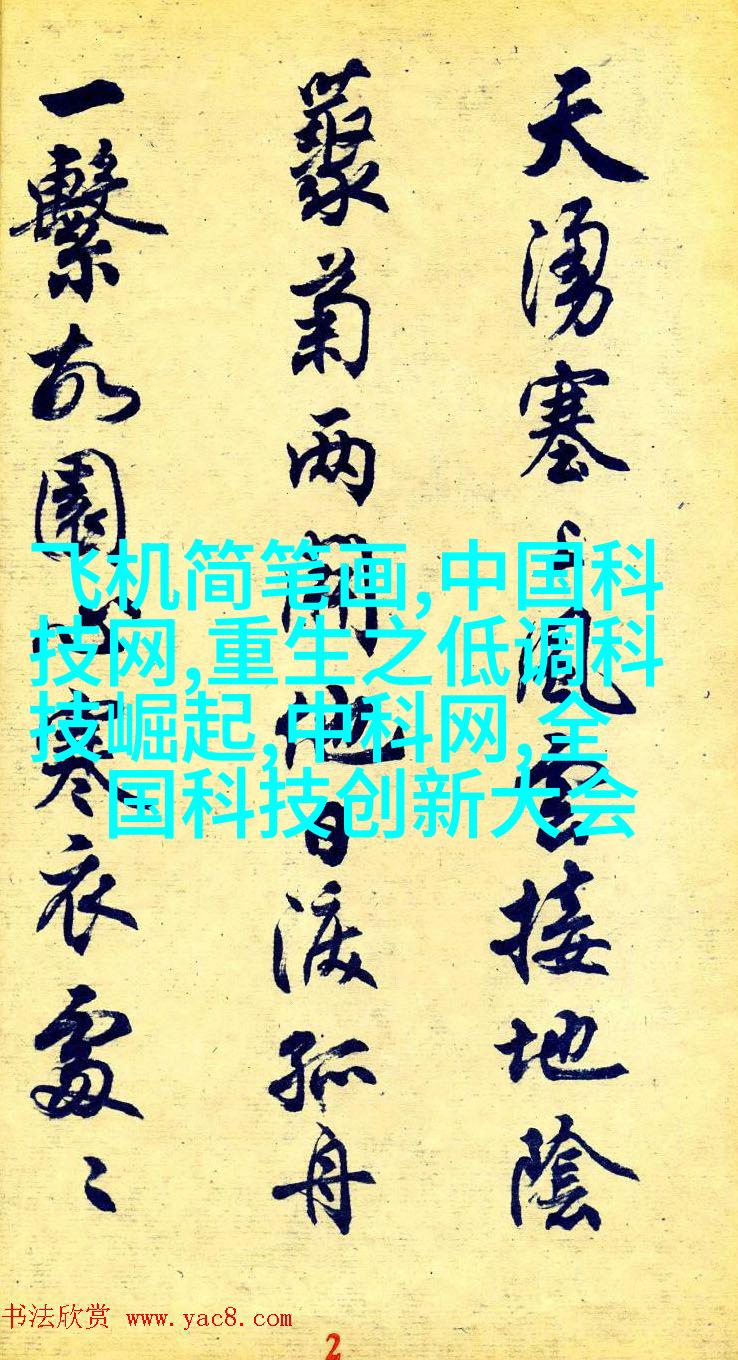 天湧塞上風雲接地陰
叢菊两開他日淚孤舟
一繫故園心寒衣處々
飞机简笔画,中国科
技网,重生之低调科
技崛起,中科网,全
国科技创新大会
书法欣赏 www.yac8.com
2